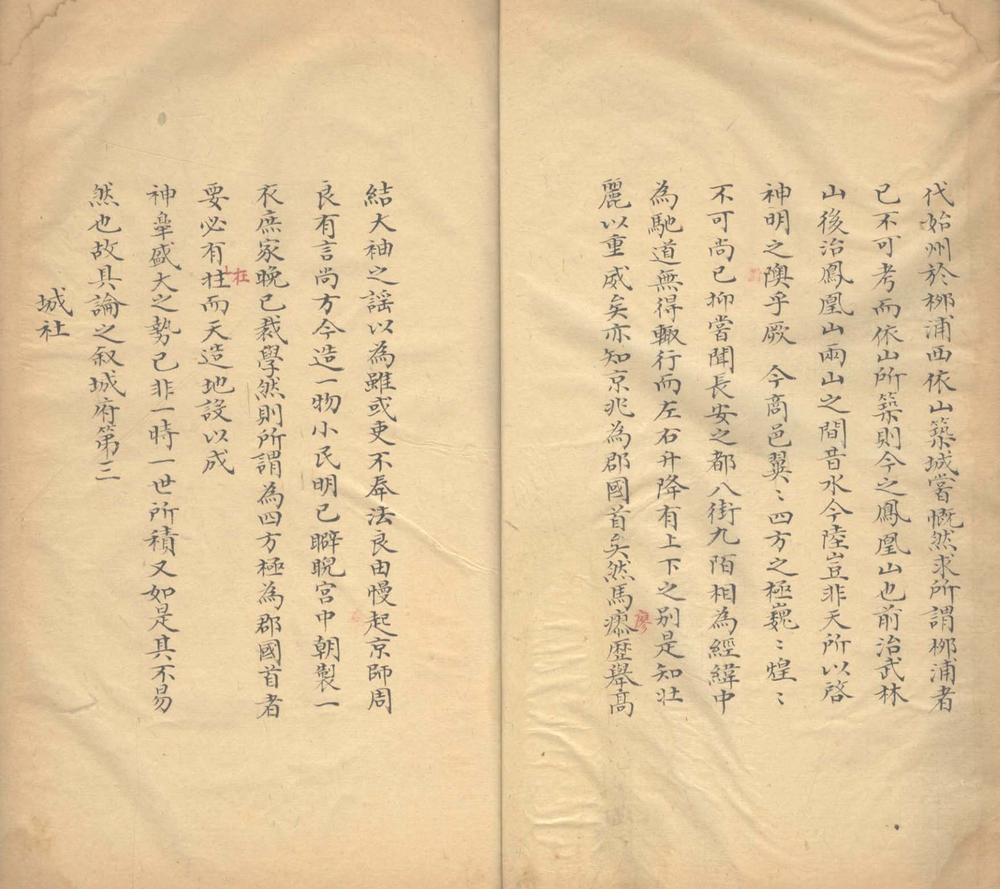 代始州於栁浦西依山築城嘗慨然求所謂栁浦者
已不可考而依山所築則今之鳳凰山也前治武林
山後治鳳凰山兩山之間昔水今陸豈非天所以啓
神明之隩乎厥　今商邑翼〻四方之極巍〻煌〻
不可尚已抑嘗聞長安之都八街九陌相為經緯中
為馳道無得輙行而左右升降有上下之别是知壯
麗以重威矣亦知京兆為郡國首矣然馬瘳歴舉髙
廖
結大袖之謡以為雖或吏不奉法良由慢起京師周
良有言尚方今造一物小民明已睥睨宫中朝製一
衣庶家晚已裁學然則所謂為四方極為郡國首者
要必有拄而天造地設以成
在
神臯盛大之勢已非一時一世所積又如是其不易
然也故具論之叙城府第三
城社